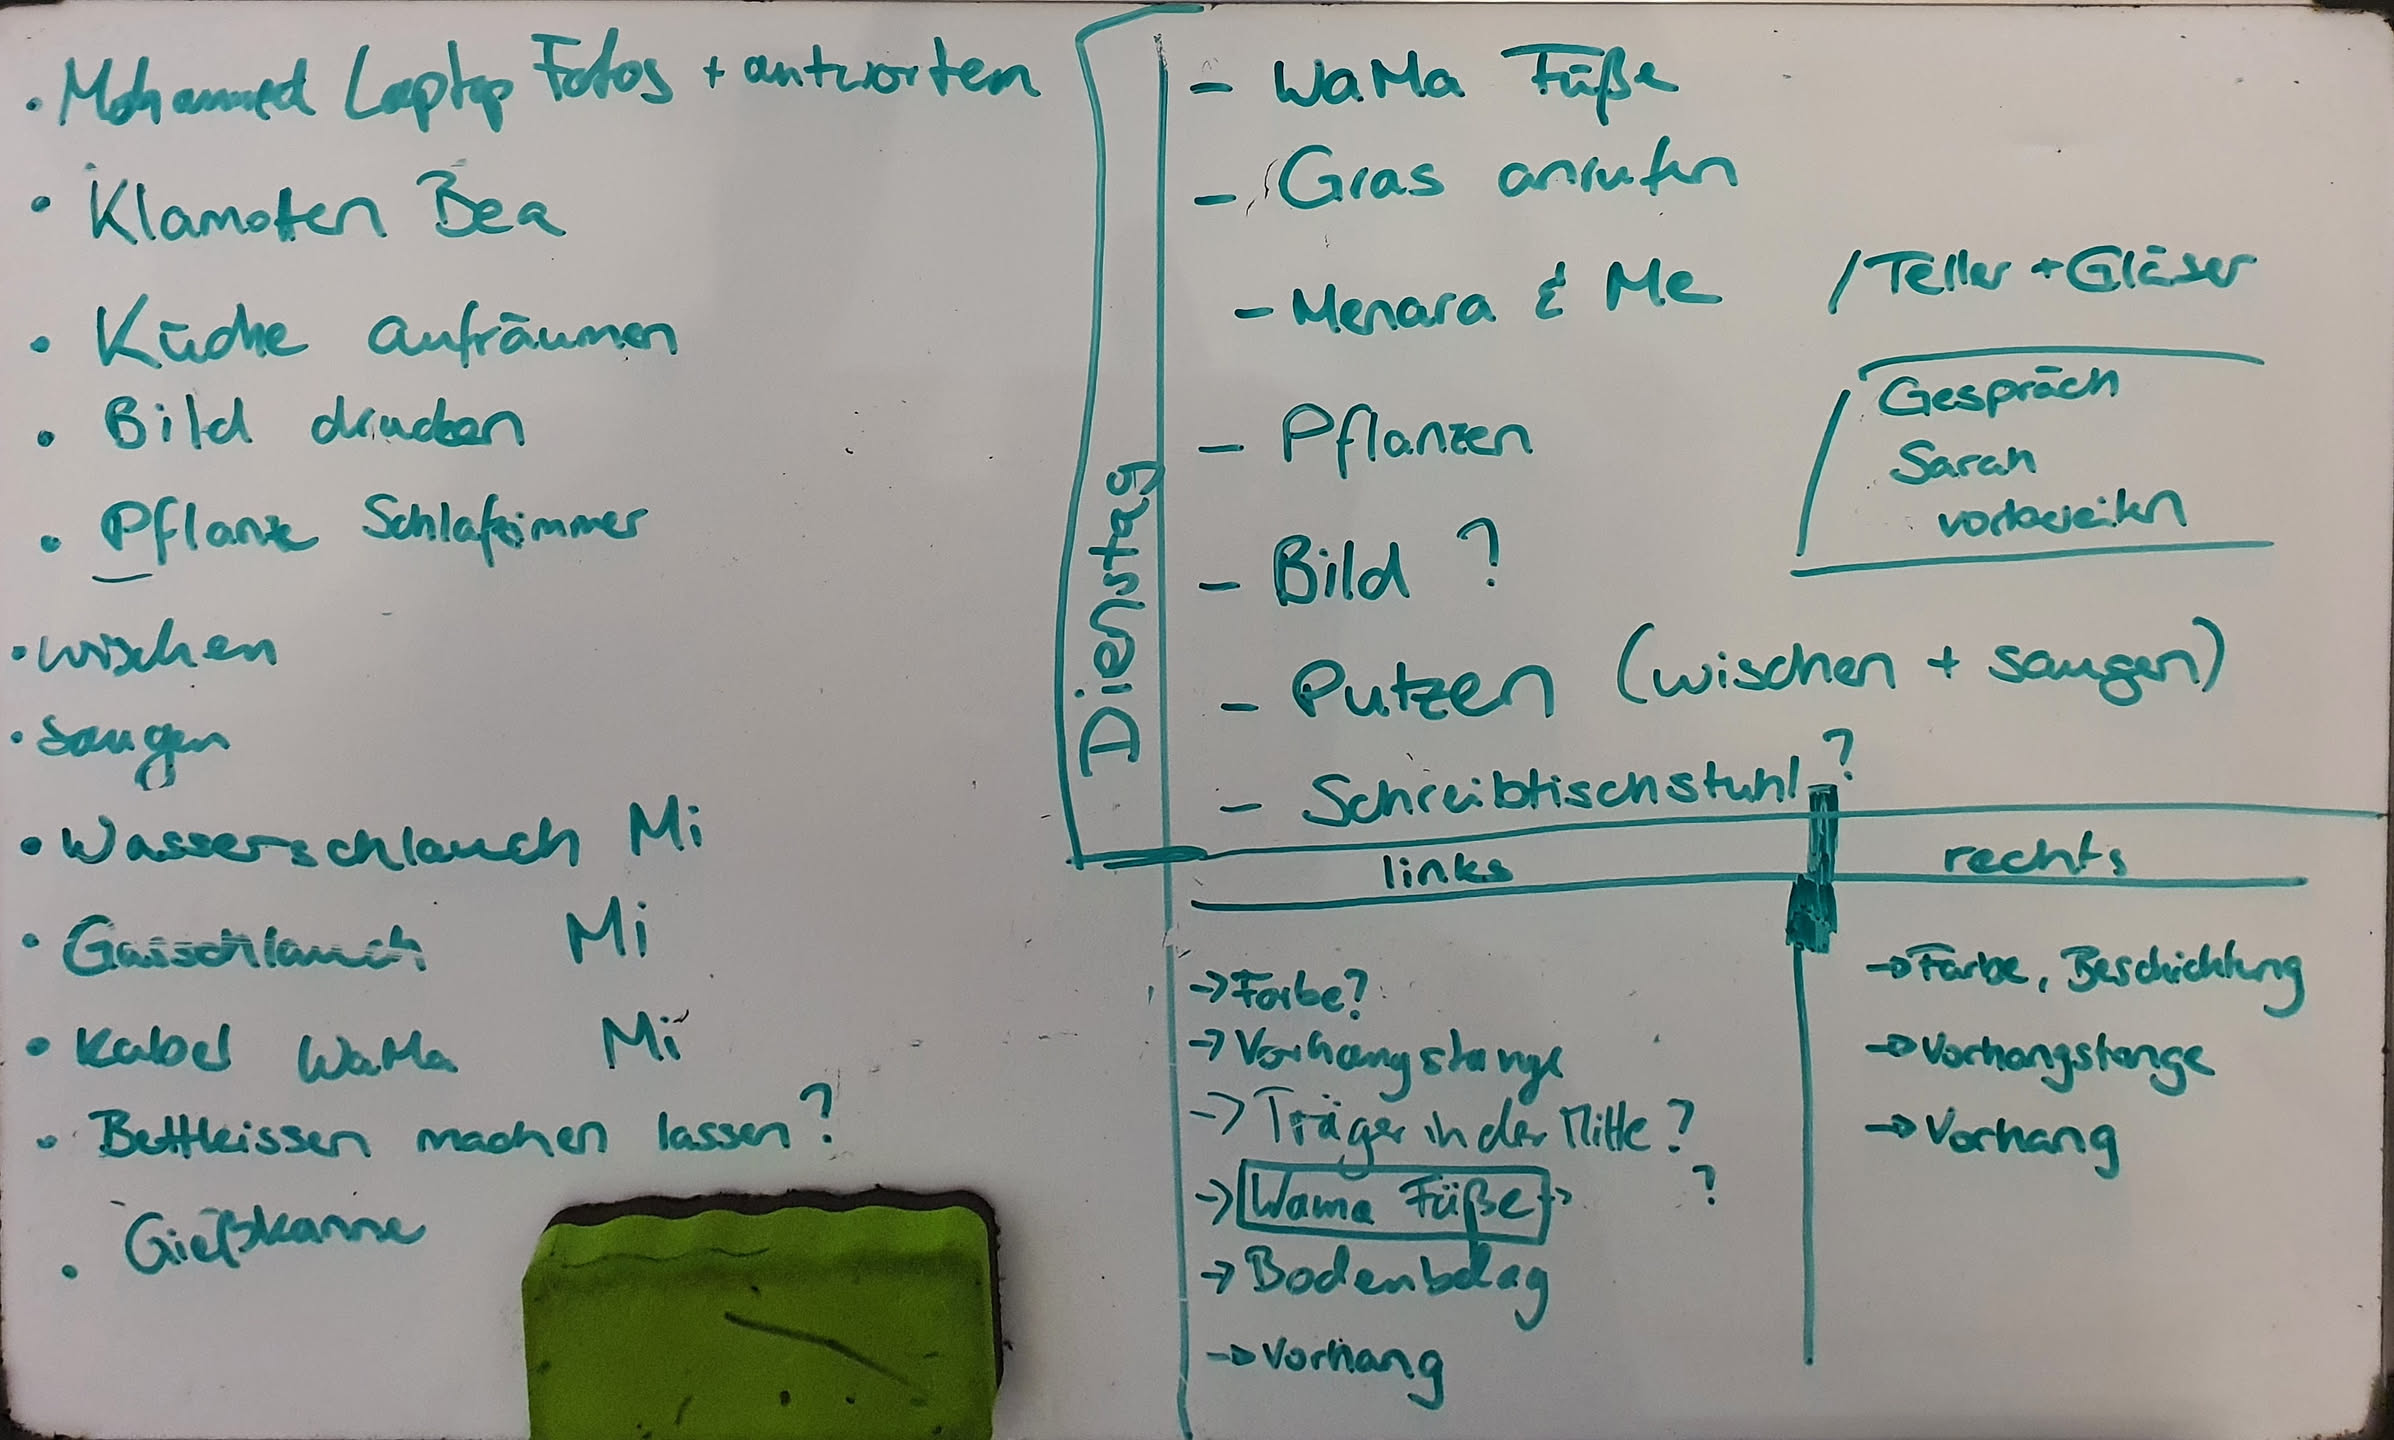 • Mohammed Laptop Fotos + antworten
• Klamotten Bea
• Küche aufräumen
• Bild drucken
• Pflanze Schlafzimmer
• wischen
• saugen
• Wasserschlauch Mi
• Gasschlauch Mi
• Kabel WaMa Mi
• Bettkissen machen lassen?
• Gießkanne
Dienstag
- WaMa Füße
- Gras anrufen
- Menara & Me / Teller + Gläser
- Pflanzen
Gespräch
Sarah
vorbereiten
- Bild ?
- Putzen (wischen + saugen)
- Schreibtischstuhl ?
links
-> Farbe?
-> Vorhangstange
-> Träger in der Mitte?
-> Wama Füße -> ?
-> Bodenbelag
-> Vorhang
rechts
-> Farbe, Beschichtung
-> Vorhangstange
-> Vorhang